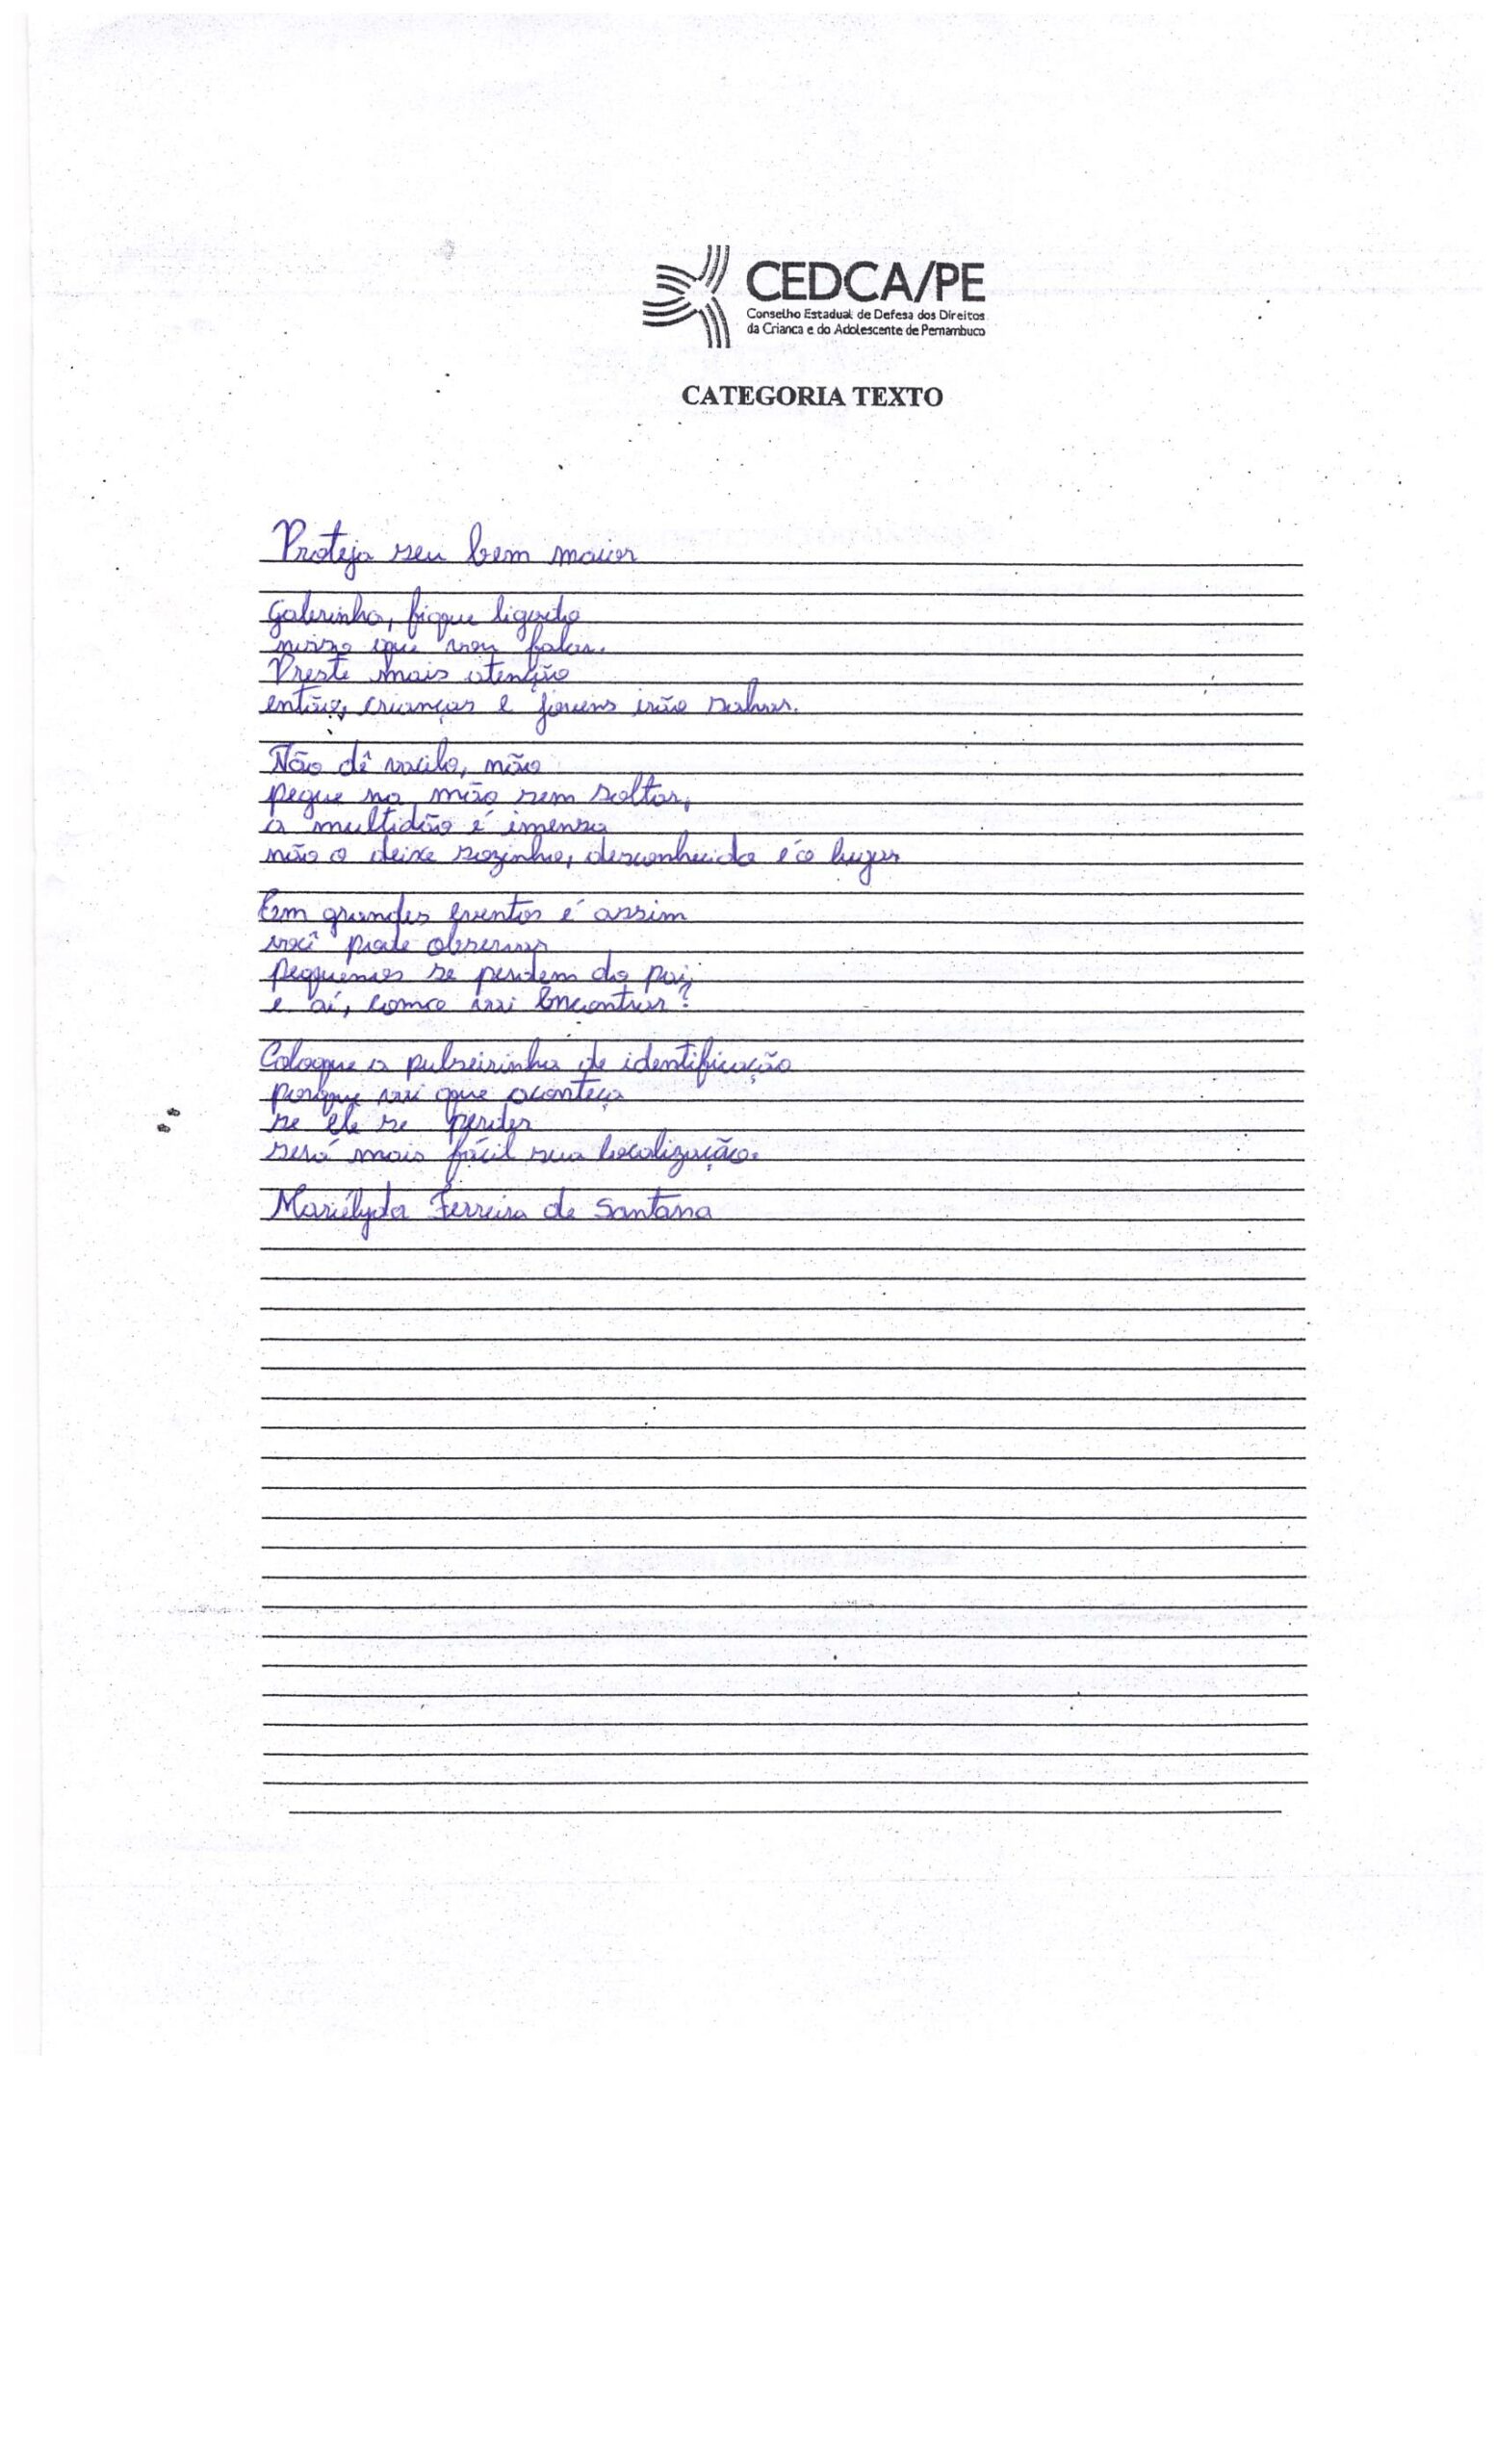 CEDCA/PE
Conselho Estadual de Defesa dos Direitos
da Crianca e do Adolescente de Pernambuco
CATEGORIA TEXTO
Proteja seu bem maior
Galerinha, fique ligado
nisso que vou falar.
Preste mais atenção
então, crianças e jovens irão salvar.
Não dê vacilo, não
pegue na mão sem soltar,
a multidão é imensa
não o deixe sozinho, desconhecido é o lugar
Em grandes eventos é assim
você pode observar
pequenos se perdem do pai,
e aí, como vai encontrar?
Coloque a pulseirinha de identificação
porque vai que aconteça
se ele se perder
será mais fácil sua localização.
Mariélyda Ferreira de Santana